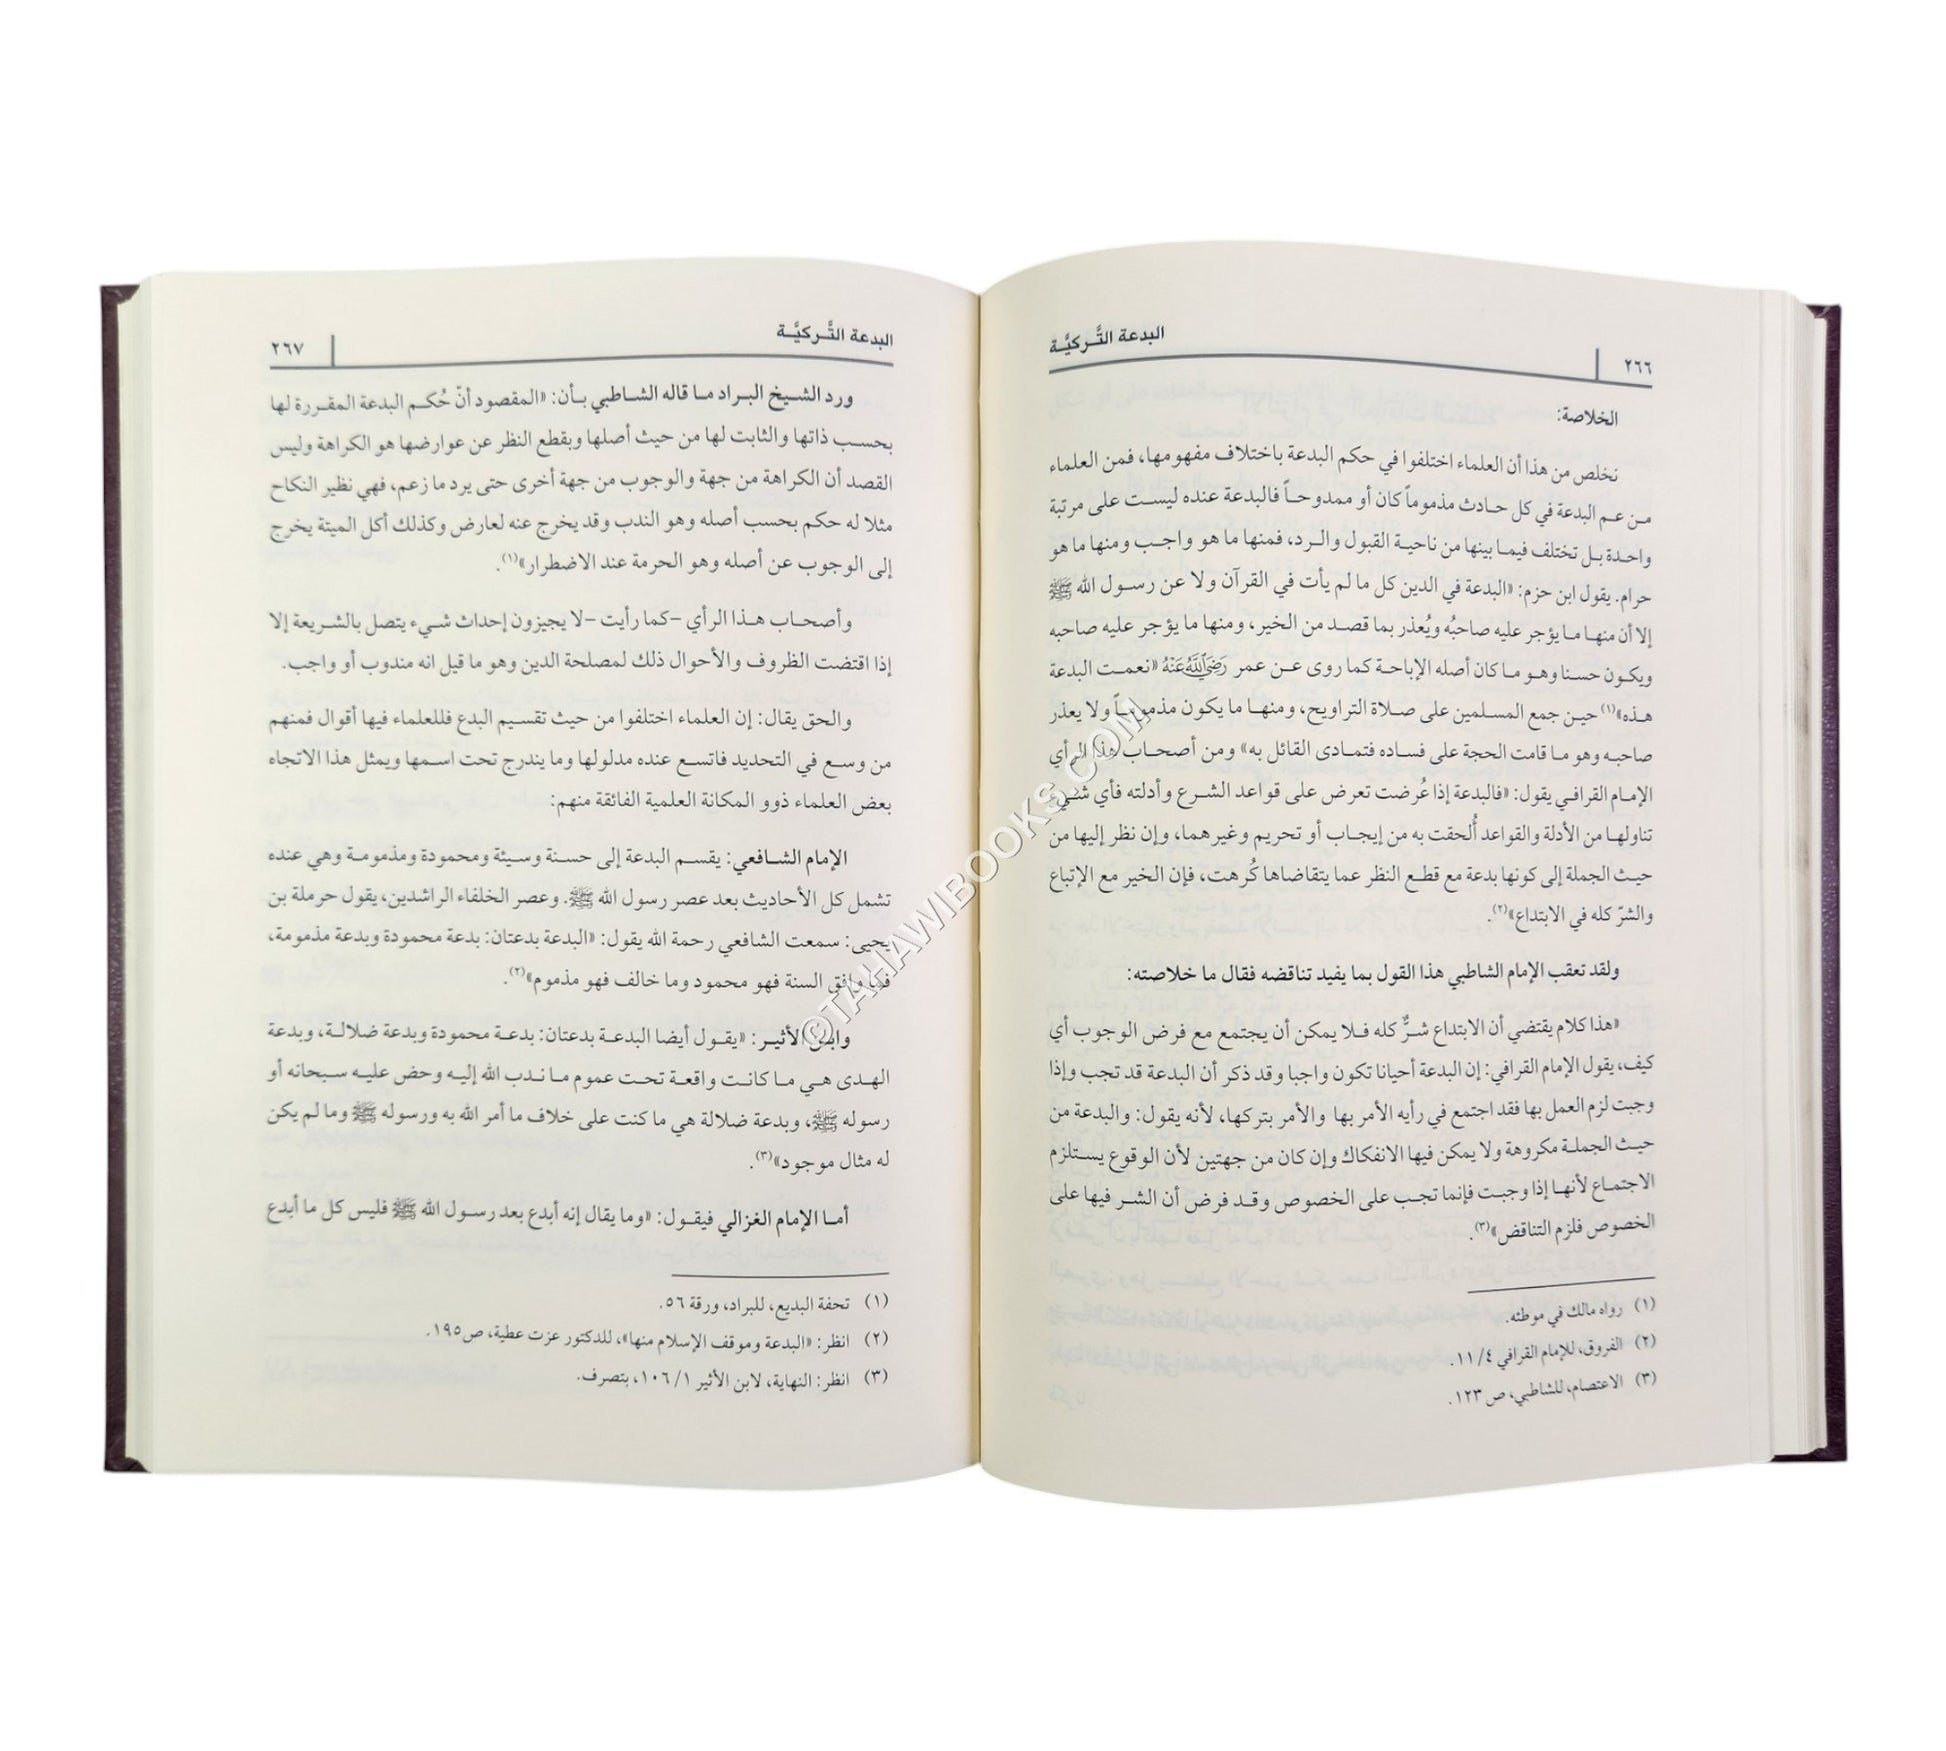 ٢٦٦
البدعة التَّركيَّة
الخلاصة:
نخلص من هذا أن العلماء اختلفوا في حكم البدعة باختلاف مفهومها، فمن العلماء
من عم البدعة في كل حادث مذموماً كان أو ممدوحاً فالبدعة عنده ليست على مرتبة
واحدة بل تختلف فيما بينها من ناحية القبول والرد، فمنها ما هو واجب ومنها ما هو
حرام. يقول ابن حزم: «البدعة في الدين كل ما لم يأت في القرآن ولا عن رسول الله ﷺ
إلا أن منها ما يؤجر عليه صاحبُه ويُعذر بما قصد من الخير، ومنها ما يؤجر عليه صاحبه
ويكون حسنا وهو ما كان أصله الإباحة كما روى عن عمر رَضِيَ اللَّهُ عَنْهُ «نعمت البدعة
هذه»(١) حين جمع المسلمين على صلاة التراويح، ومنها ما يكون مذموماً ولا يعذر
صاحبه وهو ما قامت الحجة على فساده فتمادى القائل به» ومن أصحاب هذا الرأي
الإمام القرافي يقول: «فالبدعة إذا عُرضت تعرض على قواعد الشرع وأدلته فأي شيء
تناولها من الأدلة والقواعد أُلحقت به من إيجاب أو تحريم وغيرهما، وإن نظر إليها من
حيث الجملة إلى كونها بدعة مع قطع النظر عما يتقاضاها كُرهت، فإن الخير مع الإتباع
والشرّ كله في الابتداع»(٢).
ولقد تعقب الإمام الشاطبي هذا القول بما يفيد تناقضه فقال ما خلاصته:
«هذا كلام يقتضي أن الابتداع شرٌّ كله فلا يمكن أن يجتمع مع فرض الوجوب أي
كيف، يقول الإمام القرافي: إن البدعة أحيانا تكون واجبا وقد ذكر أن البدعة قد تجب وإذا
وجبت لزم العمل بها فقد اجتمع في رأيه الأمر بها والأمر بتركها، لأنه يقول: والبدعة من
حيث الجملة مكروهة ولا يمكن فيها الانفكاك وإن كان من جهتين لأن الوقوع يستلزم
الاجتماع لأنها إذا وجبت فإنما تجب على الخصوص وقد فرض أن الشر فيها على
الخصوص فلزم التناقض»(٣).
(١) رواه مالك في موطئه.
(٢) الفروق، للإمام القرافي ٤/ ١١.
(٣) الاعتصام، للشاطبي، ص ١٢٣.
البدعة التَّركيَّة
٢٦٧
ورد الشيخ البراد ما قاله الشاطبي بأن: «المقصود أنّ حُكم البدعة المقررة لها
بحسب ذاتها والثابت لها من حيث أصلها وبقطع النظر عن عوارضها هو الكراهة وليس
القصد أن الكراهة من جهة والوجوب من جهة أخرى حتى يرد ما زعم، فهي نظير النكاح
مثلا له حكم بحسب أصله وهو الندب وقد يخرج عنه لعارض وكذلك أكل الميتة يخرج
إلى الوجوب عن أصله وهو الحرمة عند الاضطرار»(١).
وأصحاب هذا الرأي -كما رأيت -لا يجيزون إحداث شيء يتصل بالشريعة إلا
إذا اقتضت الظروف والأحوال ذلك لمصلحة الدين وهو ما قيل انه مندوب أو واجب.
والحق يقال: إن العلماء اختلفوا من حيث تقسيم البدع فللعلماء فيها أقوال فمنهم
من وسع في التحديد فاتسع عنده مدلولها وما يندرج تحت اسمها ويمثل هذا الاتجاه
بعض العلماء ذوو المكانة العلمية الفائقة منهم:
الإمام الشافعي: يقسم البدعة إلى حسنة وسيئة ومحمودة ومذمومة وهي عنده
تشمل كل الأحاديث بعد عصر رسول الله ﷺ. وعصر الخلفاء الراشدين، يقول حرملة بن
يحيى: سمعت الشافعي رحمة الله يقول: «البدعة بدعتان: بدعة محمودة وبدعة مذمومة،
فما وافق السنة فهو محمود وما خالف فهو مذموم»(٢).
وابن الأثير: «يقول أيضا البدعة بدعتان: بدعة محمودة وبدعة ضلالة، وبدعة
الهدى هي ما كانت واقعة تحت عموم ما ندب الله إليه وحض عليه سبحانه أو
رسوله ﷺ، وبدعة ضلالة هي ما كنت على خلاف ما أمر الله به ورسوله ﷺ وما لم يكن
له مثال موجود»(٣).
أما الإمام الغزالي فيقول: «وما يقال إنه أبدع بعد رسول الله ﷺ فليس كل ما أبدع
(١) تحفة البديع، للبراد، ورقة ٥٦.
(٢) انظر: «البدعة وموقف الإسلام منها»، للدكتور عزت عطية، ص١٩٥.
(٣) انظر: النهاية، لابن الأثير ١/ ١٠٦، بتصرف.
©TAHAWIBOOKS.COM